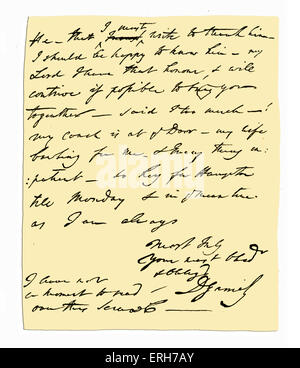 He - that I must write to thank him -
I should be happy to know him - my
Lord I have that honour, & will
contrive if possible to bring you
together - said I too much - !
my coach is at ye Door - my Wife
bawling for me, & every thing im:
:patient - so hey for Hampton
till Monday & in ye mean time
as I am always
Most truly
Your most Obedt
& Obligd
D Garrick
I have not
a moment to read
over this Scrawl -
alamy
alamy
ERH7AY
www.alamy.com